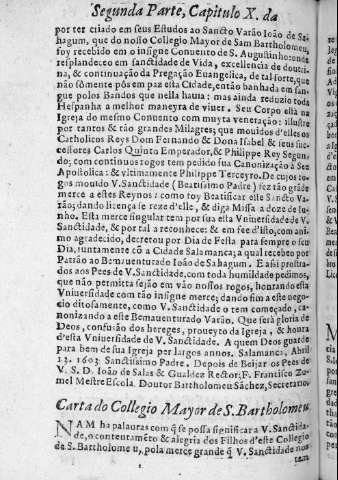 Segunda Parte, Capitulo X. da
por ter criado em seus Estudos ao Sancto Varão Ioão de Sa-
hagum, que do nosso Collegio Mayor de Sam Bartholomeu,
foy recebido em o insigne Conuento de S. Augustinho: onde
resplandeceo em sanctidade de Vida, excellencia de doutri-
na, & continuação da Pregação Euangelica, de tal sorte, que
não sômente pôs em paz esta Cidade, então banhada em san-
gue polos Bandos que nella hauia: mas ainda reduzio toda
Hespanha a melhor maneyra de viuer. Seu Corpo està na
Igreja do mesmo Conuento com muyta veneração: illustre
por tantos & tão grandes Milagres; que mouidos d'elles os
Catholicos Reys Dom Fernando & Dona Isabel & seus suc-
cessores Carlos Quinto Emperador, & Philippe Rey Segun-
do; com continuos rogos tem pedido sua Canonização à See
Apostolica: & vltimamente Philippe Terceyro. De cujos ro-
gos mouido V. Sanctidade (Beatissimo Padre) fez tão grãde
merce a estes Reynos: como foy Beatificar este Sancto Va-
rão; dando licença se reze d'elle, & diga Missa a doze de Iu-
nho. Esta merce singular tem por sua esta Vniuersidade de V.
Sanctidade, & por tal a reconhece: & em fee d'isto, com ani-
mo agradecido, decretou por Dia de Festa para sempre o seu
Dia, iuntamente cõ a Cidade Salamanca; a qual recebeo por
Patrão ao Bemauenturado Ioão de Sahagum. E assi prostra-
dos aos Pees de V. Sanctidade, com toda humildade pedimos,
que não permitta sejão em vão nossos rogos, honrando esta
Vniuersidade com tão insigne merce; dando fim a este nego-
cio ditosamente, como V. Sanctidade o tem começado, ca-
nonizando a este Bemauenturado Varão. Que serà gloria de
Deos, confusão dos hereges, proueyto da Igreja, & honra
d'esta Vniuersidade de V. Sanctidade. A quem Deos guarde
para bem de sua Igreja per largos annos. Salamanca, Abril
13. 1603. Sanctissimo Padre. Depois de Beijar os Pees de
V. S. D. Ioão de Salas & Gualdez Rector. F. Francisco Zu-
mel Mestre Escola. Doutor Bartholomeu Sãchez, Secretario.
Carta do Collegio Mayor de S. Bartholomeu
NAM ha palauras com q̃ se possa significar a V. Sanctida-
de, o contentamẽto & alegria dos Filhos d'este Collegio
de S. Bartholomeu, pola merce grande q̃ V. Sanctidade nos
tem